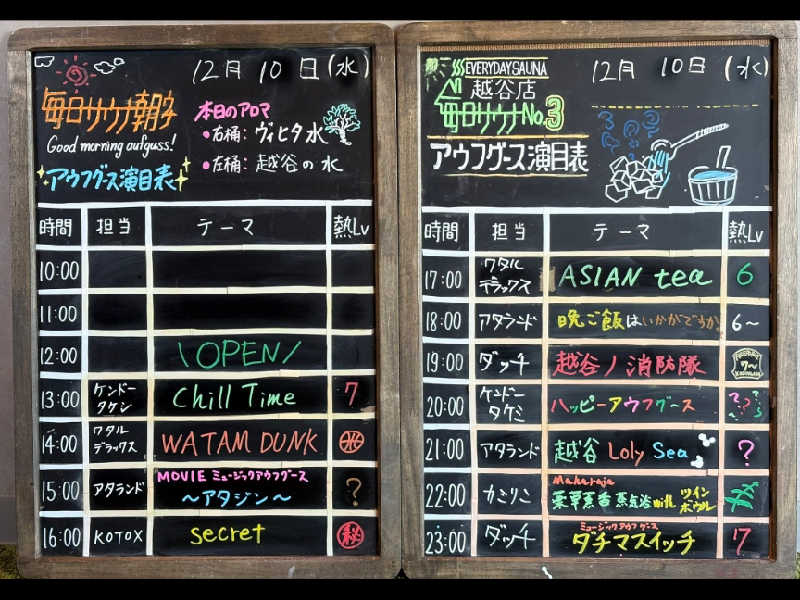 12月 10日(水)
毎日サウナ朝
Good morning aufguss!
アウフグース演目表
本日のアロマ
•右桶: ヴィヒタ水
•左桶: 越谷の水
時間 担当 テーマ 熱Lv
10:00
11:00
12:00 \OPEN/
13:00 ケンドータケシ Chill Time 7
14:00 ワタルデラックス WATAM DUNK
15:00 アタランド MOVIE ミュージックアウフグース
～アタジン～ ?
16:00 KOTOX secret ㊙
EVERYDAY SAUNA
越谷店
毎日サウナ No.3
アウフグース演目表
12月 10日(水)
時間 担当 テーマ 熱Lv
17:00 ワタルデラックス ASIAN tea 6
18:00 アタランド 晩ご飯はいかがですか 6～
19:00 ダッチ 越谷ノ消防隊 7～
20:00 ケンドータケミ ハッピーアウフグース ???
21:00 アタランド 越谷 Loly Sea ?
22:00 カミりこ Maharaja
薬草蒸香 蒸気浴 with ツインボウル
23:00 ダッチ ミュージックアウフグース
ダチマスイッチ 7